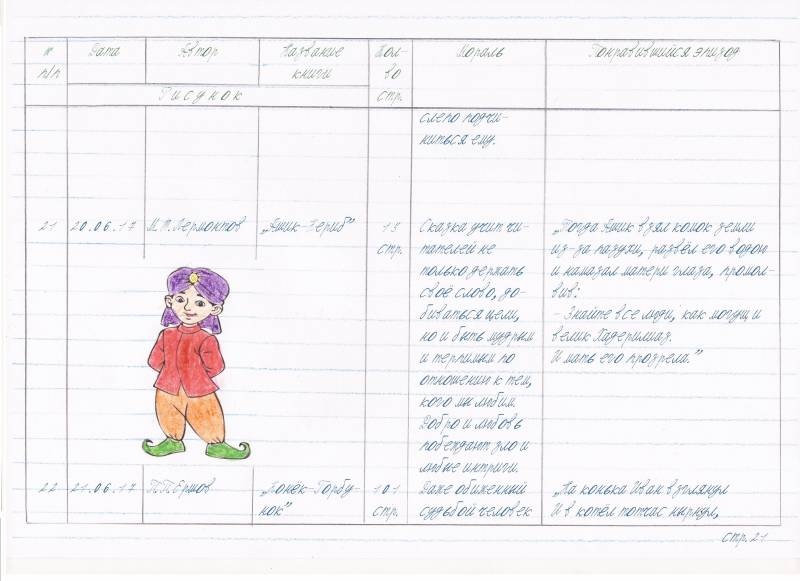 № п/п
Дата
Автор
Название
книги
Кол-
во
стр.
Мораль
Понравившийся эпизод
Рисунок
слепо подчи-
ниться ему.
21
20.06.17
М.Ю.Лермонтов
„Ашик-Кериб”
15
стр.
Сказка учит чи-
тателей не
только держать
своё слово, до-
биваться цели,
но и быть мудрым
и терпимым по
отношению к тем,
кого мы любим.
Добро и любовь
побеждают зло и
любые интриги.
„Тогда Ашик взял комок земли
из-за пазухи, развёл его водою
и намазал матери глаза, промол-
вив:
- Знайте все люди, как могущ и
велик Хадерилиаз.
И мать его прозрела.”
22
21.06.17
П.П.Ершов
„Конёк-Горбу-
нок”
101
стр.
Даже обиженный
судьбой человек
„На конька Иван взглянул
И в котёл тотчас нырнул,
стр.21